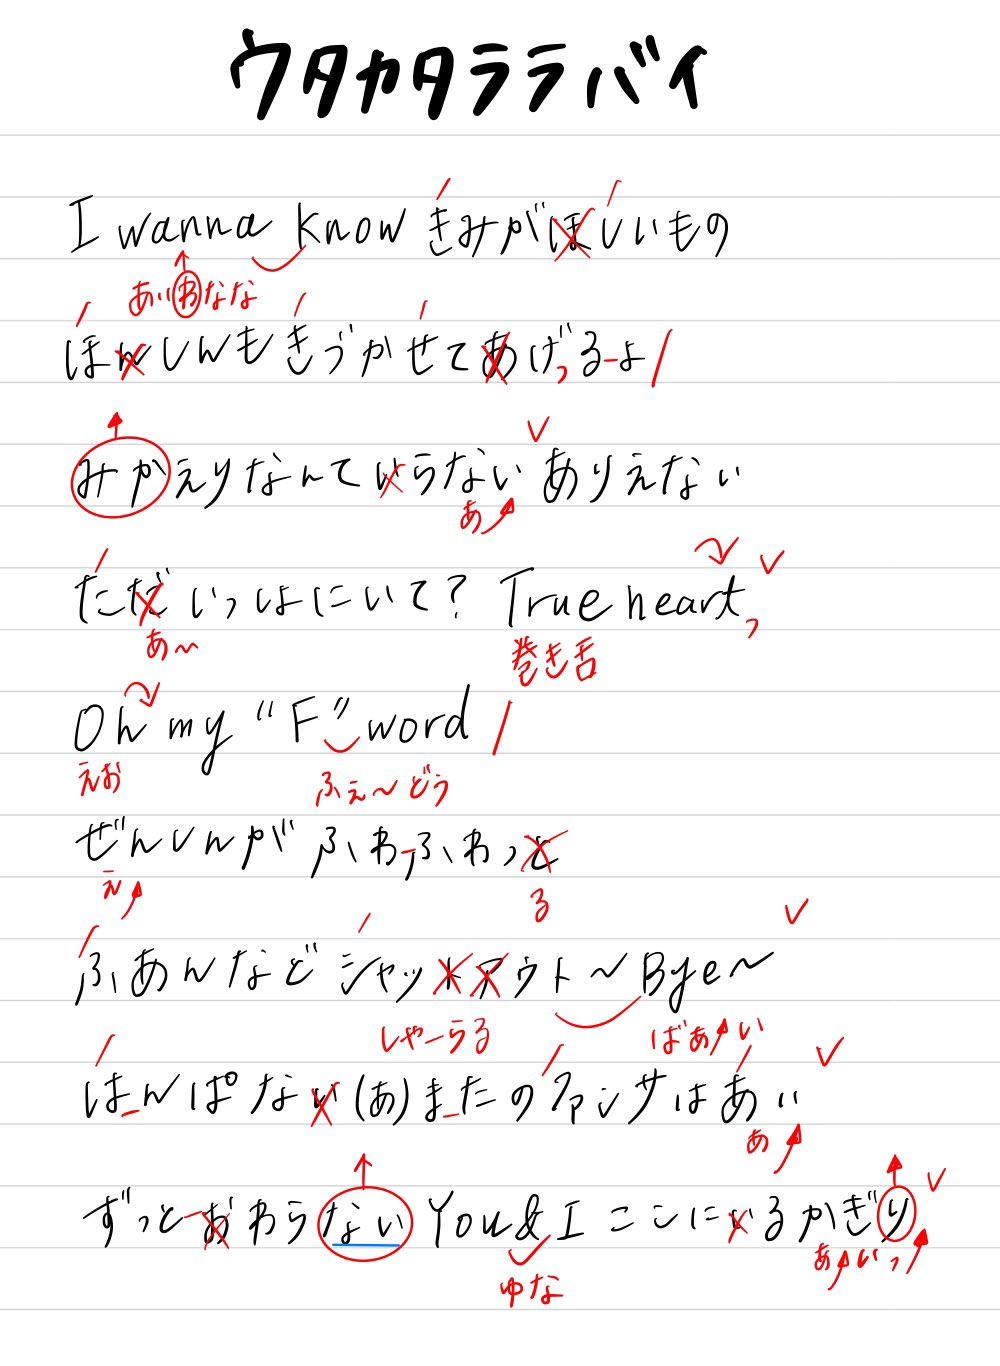 ウタカタララバイ
I wanna know きみがほしいもの
あいわなな
ほんしんもきづかせてあげっるーよ
みかえりなんていらない ありえない
あ
ただいっしょにいて? True heart,
あ〜 巻き舌
Oh my “F” word
えお ふぇ〜どぅ
ぜんしんがふわーふわっと
え る
ふあんなどシャットアウト〜Bye〜
しゃーらる ばあい
はーんぱない(あ)まーたのファンサはあい
あ
ずっとーおわらない You&I ここにいるかぎり
ゆな あいっ